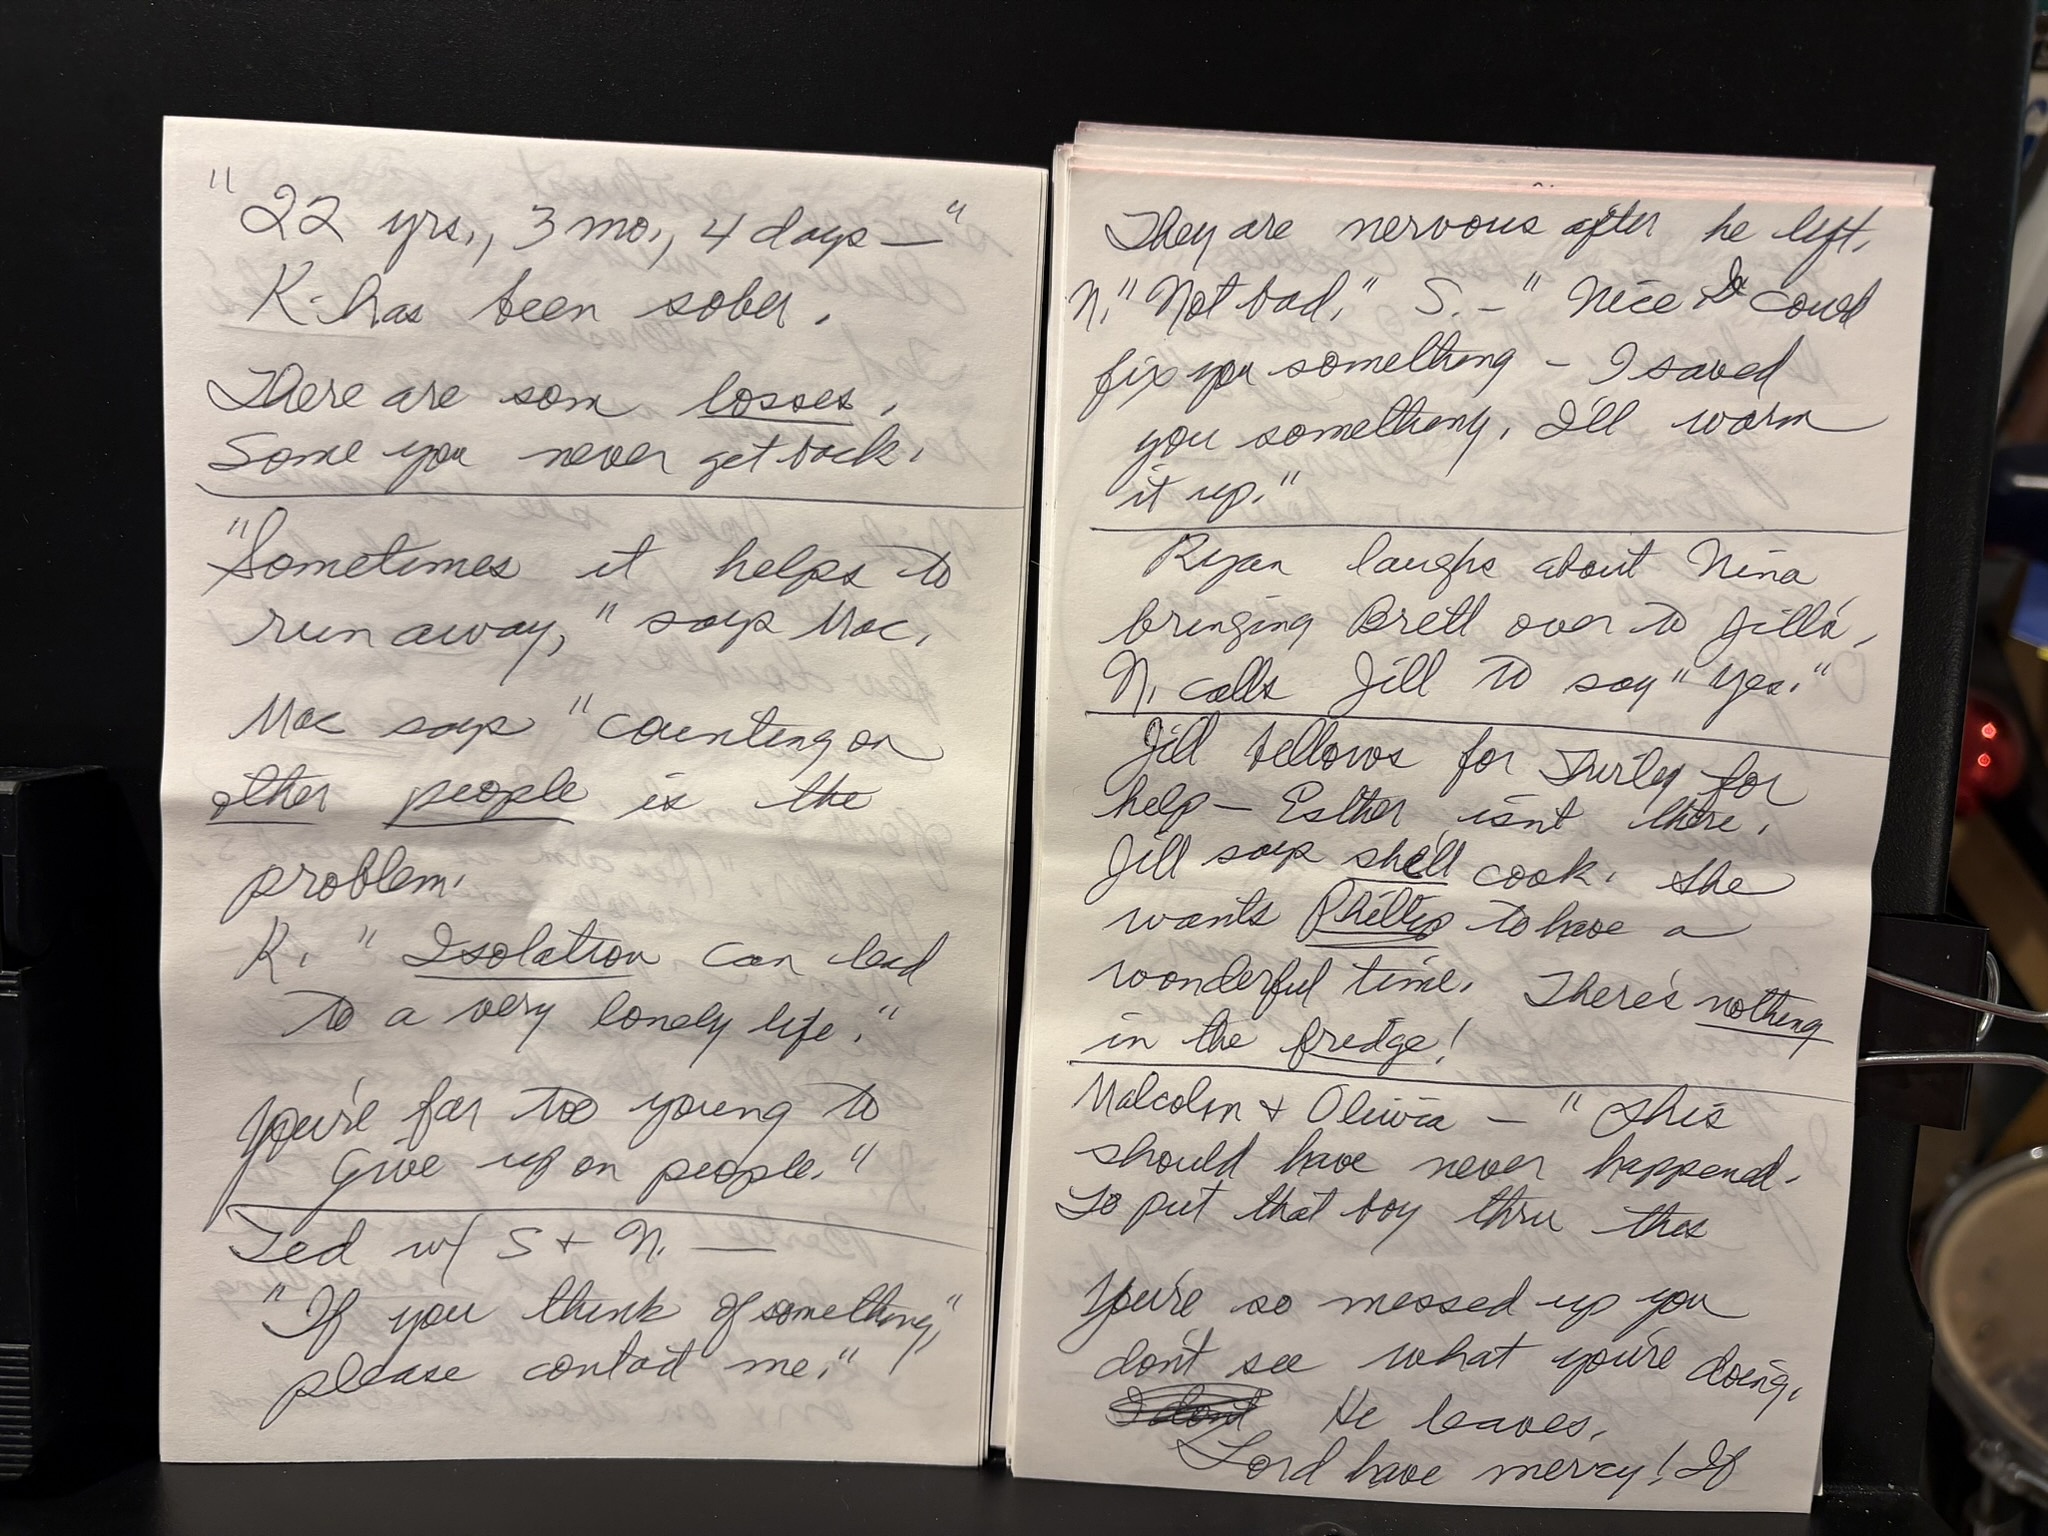 "22 yrs., 3 mo., 4 days—"
K- has been sober.
There are som losses.
Some you never get back.
"Sometimes it helps to
run away," says Mac.
Mac says "counting on
other people is the
problem.
K. "Isolation can lead
to a very lonely life."
You're far too young to
give up on people."
Ted w/ S + N. —
"If you think of something,"
please contact me."
They are nervous after he left.
N. "Not bad." S. - "Nice I coud
fix you something - I saved
you something. I'll warm
it up."
Ryan laughs about Nina
bringing Brett over to Jill's.
N. calls Jill to say "yes."
Jill bellows for Thurley for
help — Esther isn't there.
Jill says she'll cook. She
wants Phillip to have a
wonderful time. There's nothing
in the fredge!
Malcolm + Olivia — "This
should have never happend.
To put that boy thru this
You're so messed up you
don't see what you're doing.
I don't He leaves.
Lord have mercy! If